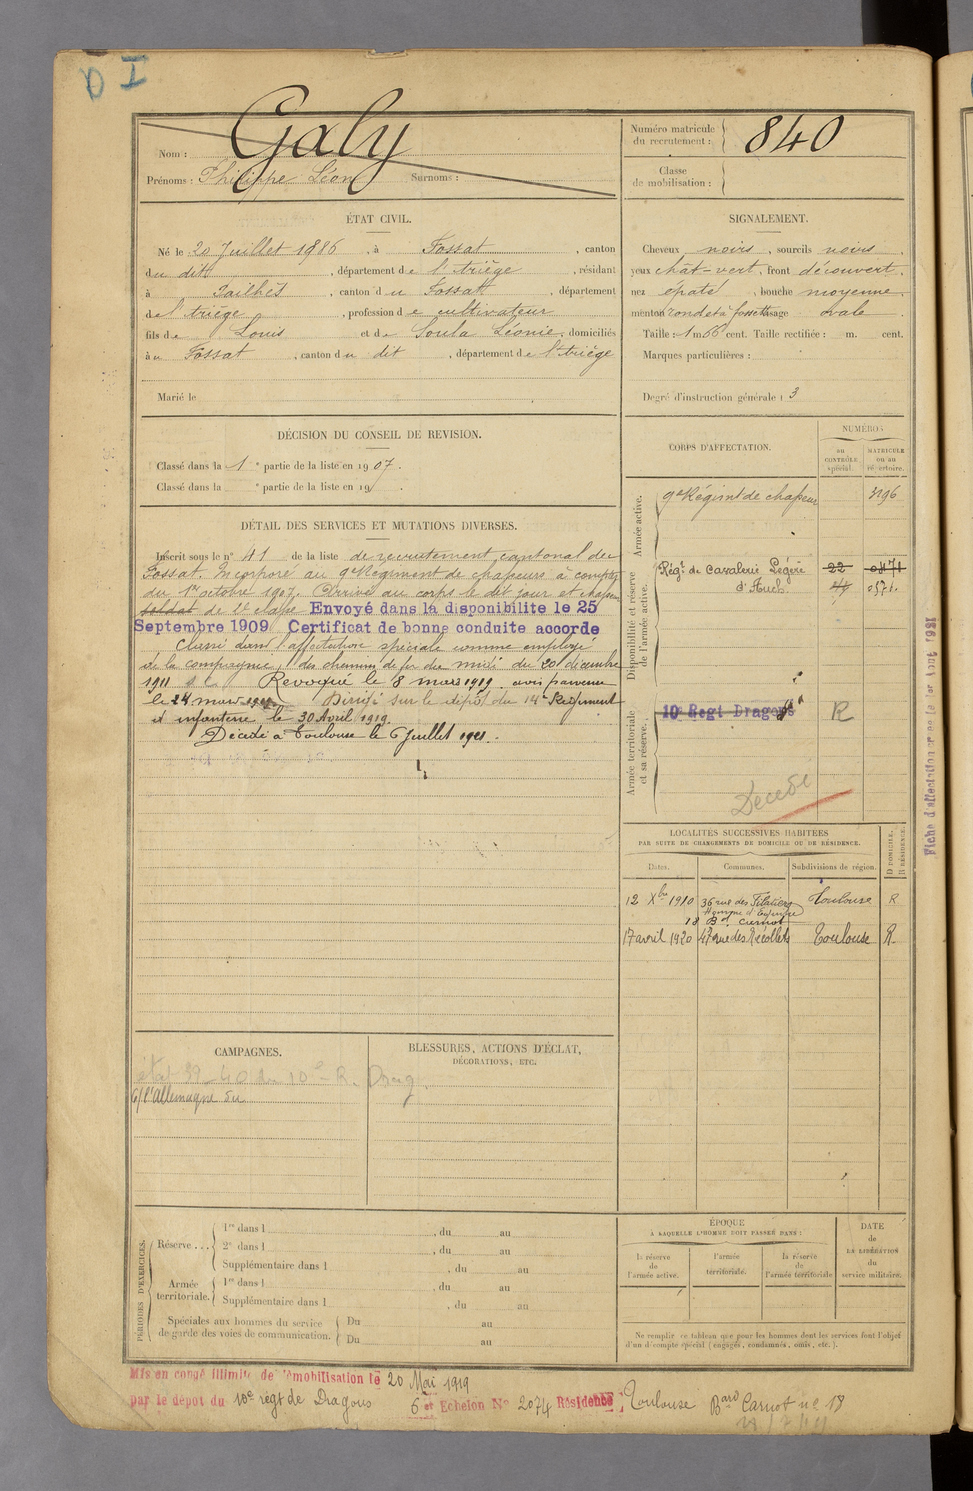 D I
Nom : Galy
Prénoms : Philippe Léon Surnoms :
Numéro matricule
du recrutement : 840
Classe
de mobilisation :
ÉTAT CIVIL.
Né le 20 Juillet 1886, à Fossat, canton
du dit, département de l'Ariège, résidant
à Pailhès, canton du Fossat, département
de l'Ariège, profession de cultivateur
fils de Louis et de Soula Léonie, domiciliés
à u Fossat, canton du dit, département de l'Ariège
Marié le
SIGNALEMENT.
Cheveux noirs, sourcils noirs
yeux chât-vert, front découvert,
nez épaté, bouche moyenne,
menton rond et à fossette visage ovale.
Taille : 1 m 66 cent. Taille rectifiée : m. cent.
Marques particulières :
Degré d'instruction générale : 3
DÉCISION DU CONSEIL DE REVISION.
Classé dans la 1e partie de la liste en 1907.
Classé dans la e partie de la liste en 19 .
DÉTAIL DES SERVICES ET MUTATIONS DIVERSES.
Inscrit sous le n° 41 de la liste de recrutement cantonal du
Fossat. Incorporé au 9e Régiment de chasseurs à compter
du 1er octobre 1907. Arrivé au corps le dit jour et chasseur
soldat de 2e classe Envoyé dans la disponibilite le 25
Septembre 1909 Certificat de bonne conduite accorde
Classé dans l'affectation spéciale comme employé
de la compagnie des chemins de fer du midi du 20 décembre
1911 Revoqué le 8 mars 1919 avis parvenu
le 24 mars 1919. Dirigé sur le dépôt du 14e Régiment
d'infanterie le 30 Avril 1919.
Décédé à Toulouse le 6 Juillet 1921.
CORPS D'AFFECTATION.
NUMÉROS
au
CONTRÔLE
spécial.
MATRICULE
ou au
répertoire.
Armée active.
9e Régiment de chasseurs 3196
Disponibilité et réserve
de l'armée active.
Régt de Cavalerie Légère 22
d'Auch
Armée territoriale
et sa réserve.
10e Regt Dragons R
Décédé
LOCALITÉS SUCCESSIVES HABITÉES
PAR SUITE DE CHANGEMENTS DE DOMICILE OU DE RÉSIDENCE.
Dates. Communes. Subdivisions de région. D DOMICILE. R RÉSIDENCE.
12 Xbre 1910 36 rue des Filatiers Toulouse R
18 Bd Carnot
17 avril 1920 47 rue des Récollets Toulouse R.
Fiche d'affectation créée le 1er Aout 1931
CAMPAGNES.
état 39-40 du 10e R. Drag.
c/ l'Allemagne du
BLESSURES, ACTIONS D'ÉCLAT,
DÉCORATIONS, ETC.
PÉRIODES D'EXERCICES.
Réserve ... 1re dans l , du au
2e dans l , du au
Supplémentaire dans l , du au
Armée
territoriale. 1re dans l , du au
Supplémentaire dans l , du au
Spéciales aux hommes du service
de garde des voies de communication. Du au
Du au
ÉPOQUE
A LAQUELLE L'HOMME DOIT PASSER DANS :
la réserve
de
l'armée active.
l'armée
territoriale.
la réserve
de
l'armée territoriale
DATE
de
LA LIBÉRATION
du
service militaire.
Ne remplir ce tableau que pour les hommes dont les services font l'objet
d'un décompte spécial (engagés, condamnés, omis, etc.).
Mis en congé illimité de démobilisation le 20 Mai 1919
par le dépôt du 10e régt de Dragons 6e Echelon N° 2074 Résidence Toulouse Bard Carnot n° 18